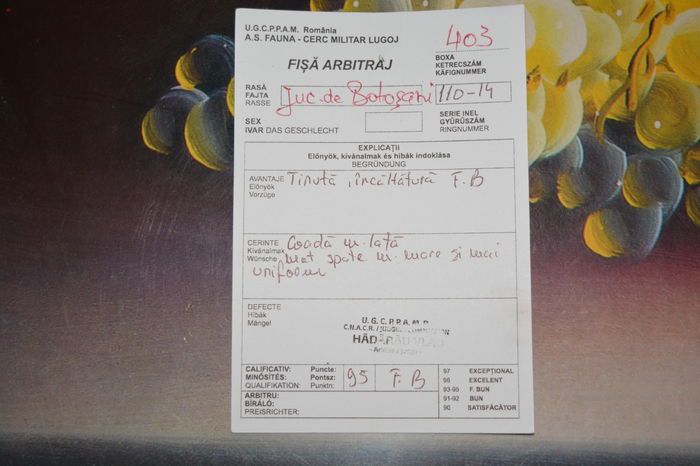 U.G.C.P.P.A.M. România
A.S. FAUNA - CERC MILITAR LUGOJ
403
FIŞĂ ARBITRAJ
BOXA
KETRECSZÁM
KÁFIGNUMMER
RASĂ
FAJTA
RASSE
Juc. de Botoşani
110-14
SEX
IVAR DAS GESCHLECHT
SERIE INEL
GYŰRŰSZÁM
RINGNUMMER
EXPLICAŢII
Előnyök, kívánalmak és hibák indoklása
BEGRÜNDUNG
AVANTAJE
Előnyök
Vorzüge
Ţinută, încălţătură F.B
CERINTE
Kívánalmak
Wünsche
Coadă m. lată
spate m. mare şi mai
uniform
DEFECTE
Hibák
Mängel
U.G.C.P.P.A.M. R.
C.N.A.C.R.
HĂDĂRĂU VLAD
CALIFICATIV: Puncte:
MINŐSÍTÉS: Pontsz:
QUALIFIKATION: Punktn:
95
F.B
97 EXCEPŢIONAL
96 EXCELENT
93-95 F. BUN
91-92 BUN
90 SATISFĂCĂTOR
ARBITRU:
BÍRÁLÓ:
PREISRICHTER: